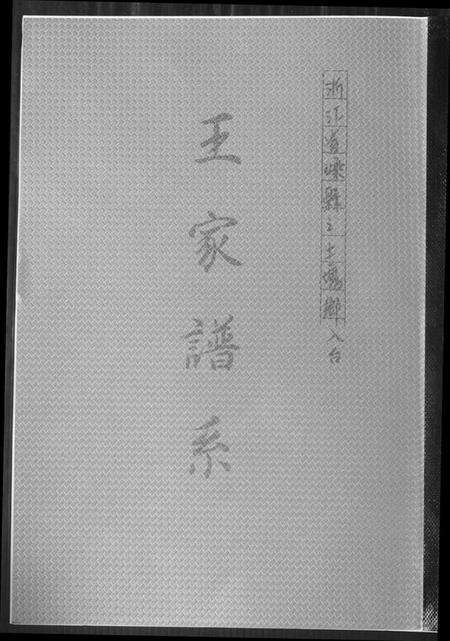 浙江省嵊縣三土塢鄉入台
王家譜系